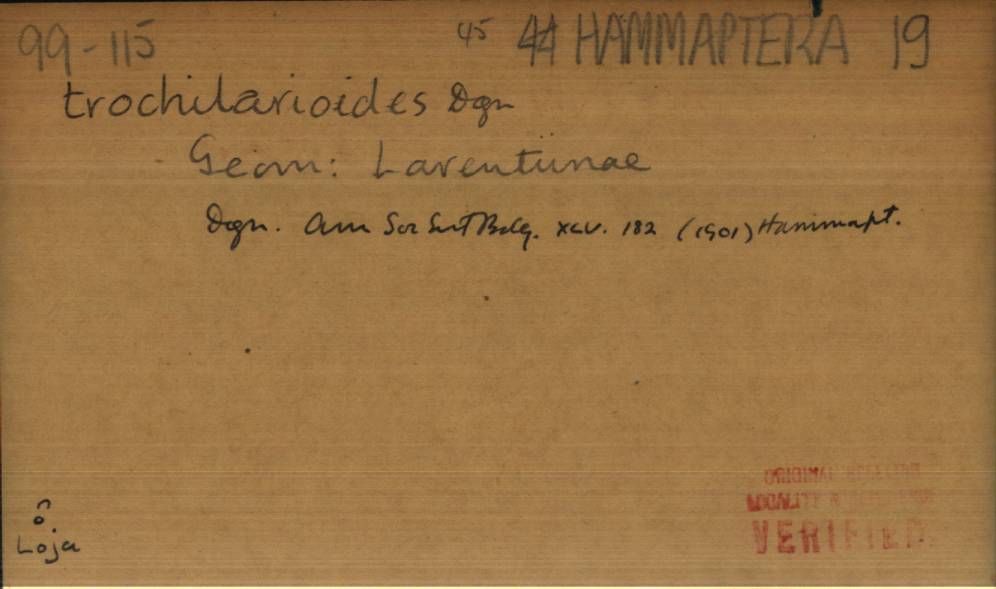 99-115 45 44 HAMMAPTERA 19
trochilarioides Dgn
Geom: Larentiinae
Dgn. Ann Soc Ent Belg. XLV. 182 (1901) Hammapt.
Loja
ORIGINAL
LOCALITY
VERIFIED